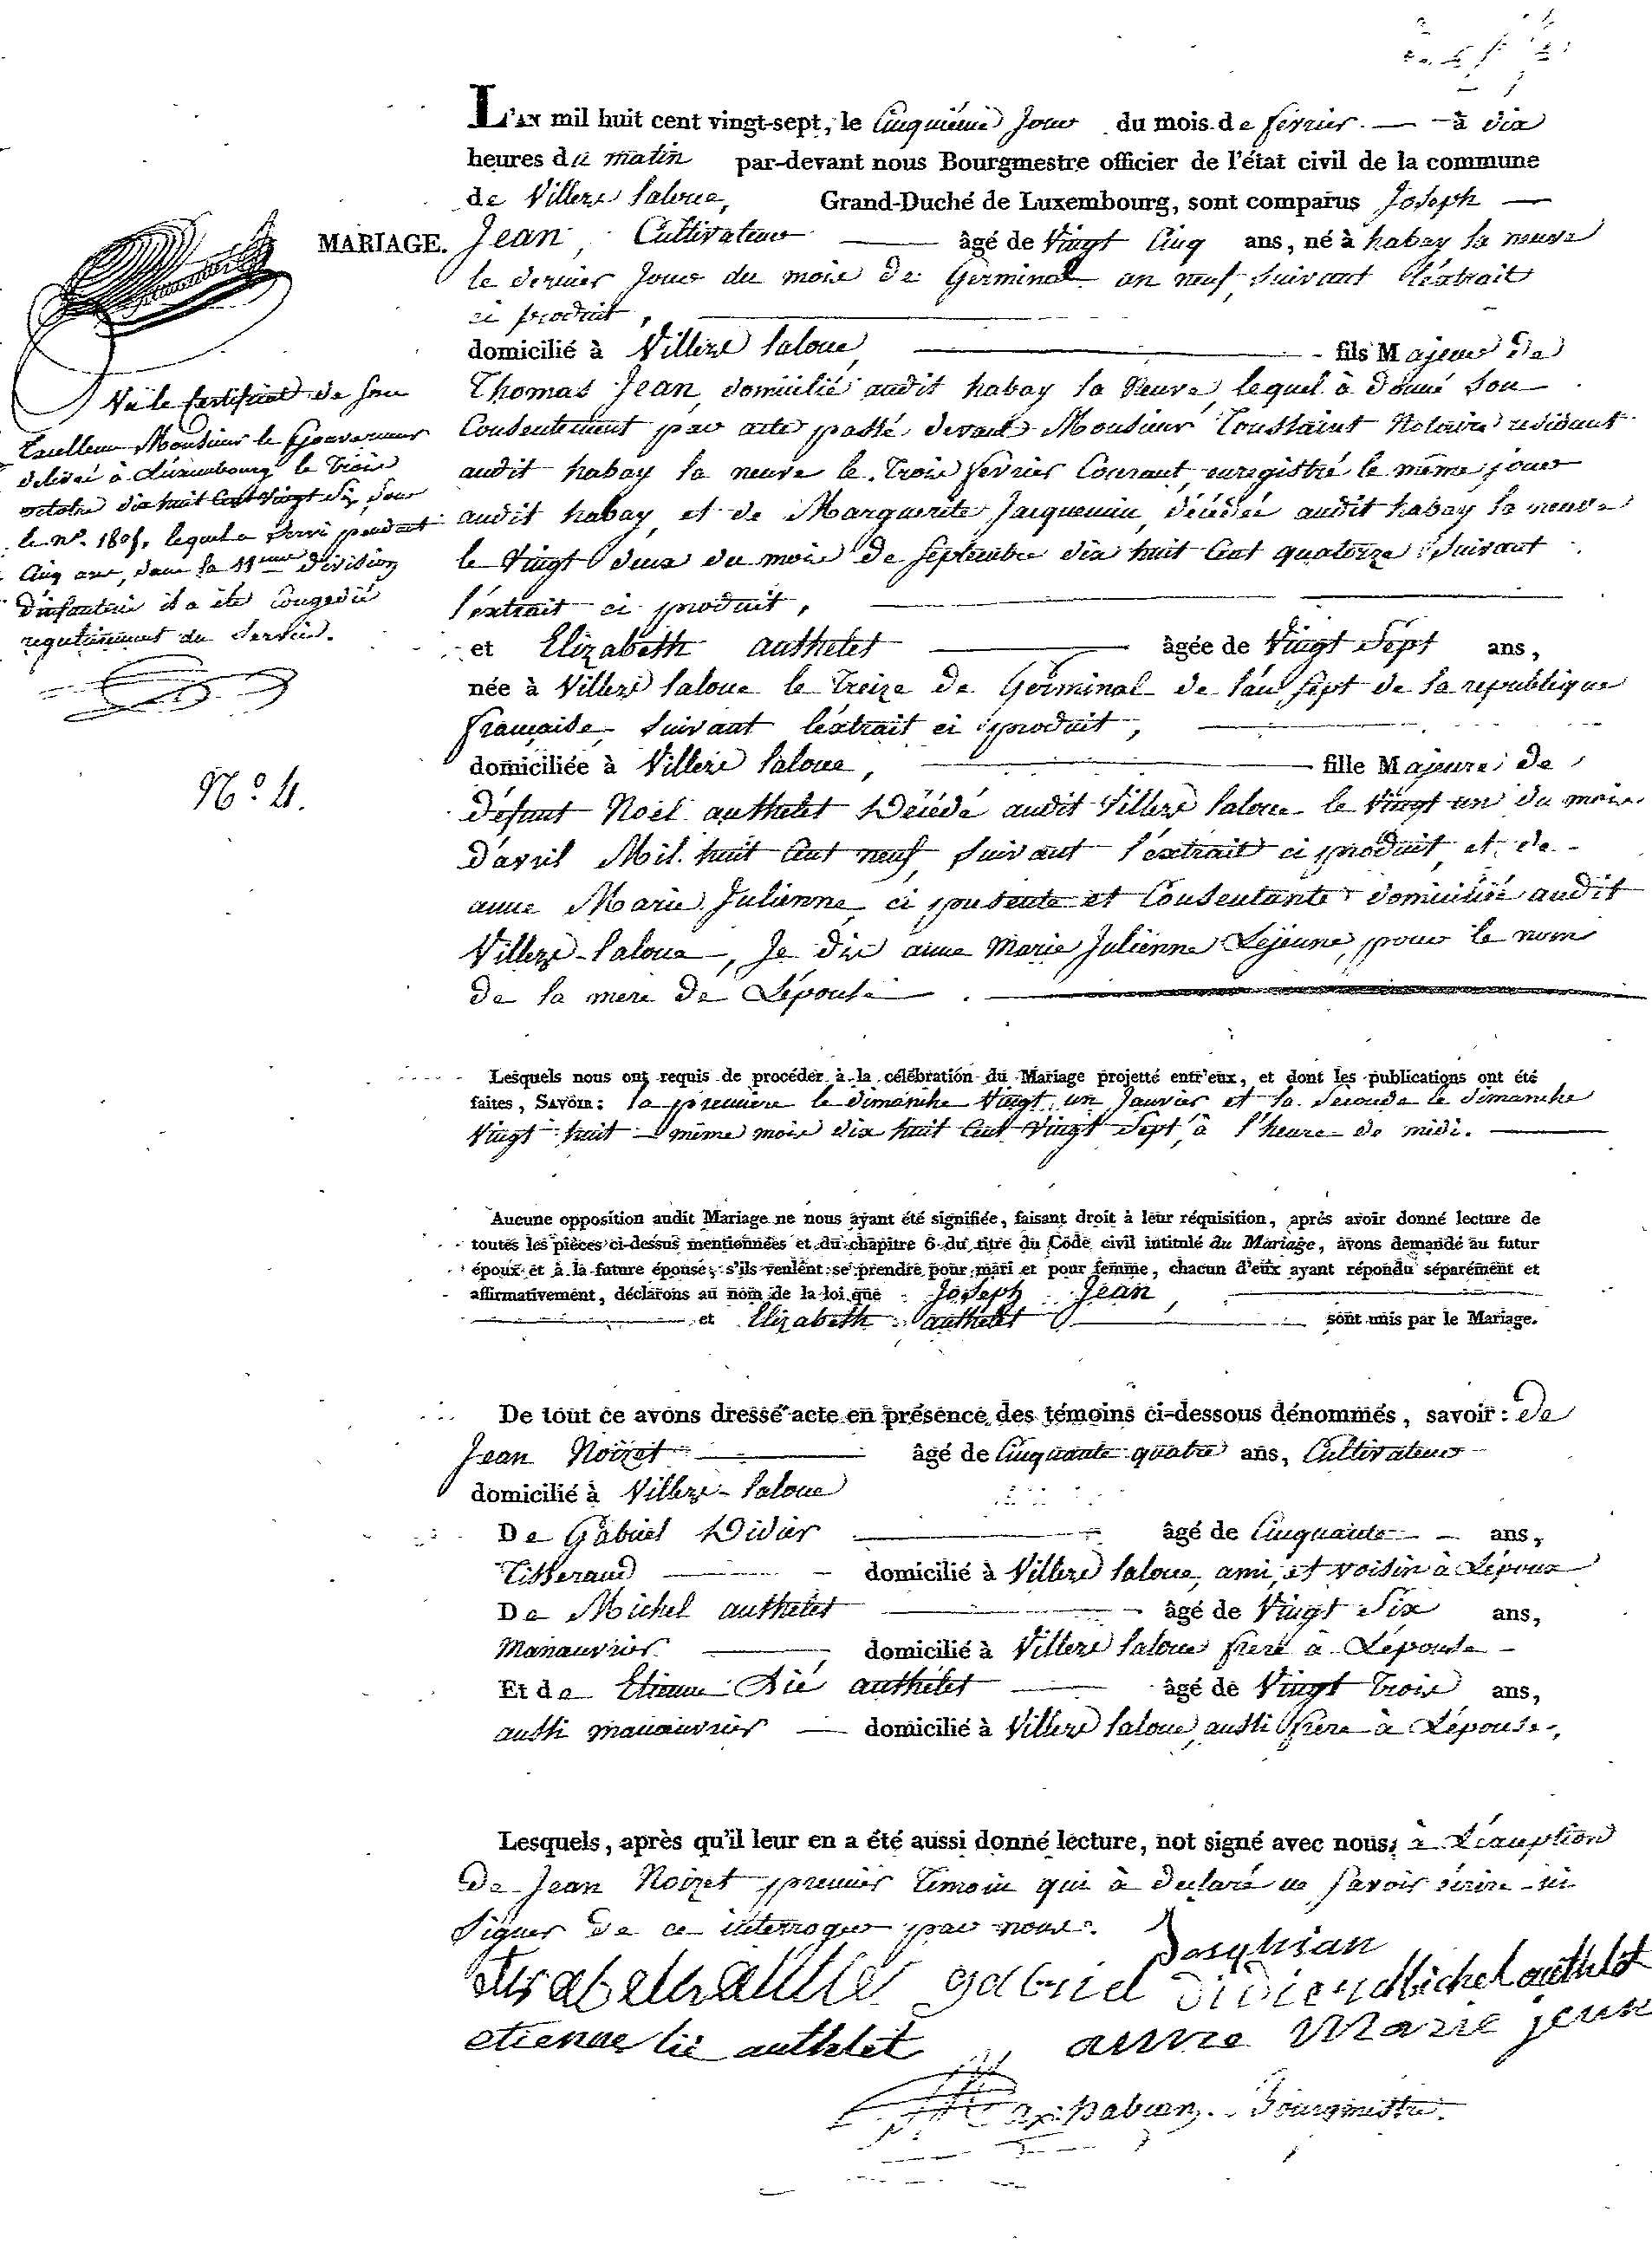 L'AN mil huit cent vingt-sept, le Cinquiéme Jour du mois de fevrier à dix
heures du matin par-devant nous Bourgmestre officier de l'état civil de la commune
de Villers Laloue, Grand-Duché de Luxembourg, sont comparus Joseph
MARIAGE. Jean, Cultivateur âgé de Vingt Cinq ans, né à habay la neuve
le dernier Jour du mois de Germinal an neuf, Suivant l'éxtrait
ci produit,
domicilié à Villers Laloue, fils Majeur de
Thomas Jean, domicilié audit habay la Neuve, lequel à donné Son
Consentement par acte passé devant Monsieur Toussaint Notaire residant
audit habay la neuve le Trois fevrier Courant, enregistré le même jour
audit habay, et de Marguerite Jacquemin, décédée audit habay la neuve
le Vingt deux du mois de Septembre dix huit Cent quatorze Suivant
l'éxtrait ci produit,
et Elizabeth authelet âgée de Vingt Sept ans,
née à Villers Laloue le Treize de Germinal de l'an Sept de la republique
française, Suivant l'éxtrait ci produit,
domiciliée à Villers Laloue, fille Majeure de
défunt Noël authelet Décédé audit Villers Laloue le Vingt un du mois
d'avril Mil huit Cent neuf, Suivant l'éxtrait ci produit, et de
anne Marie Julienne ci presente et Consentante domiciliée audit
Villers-Laloue, Je dis anne Marie Julienne Lejeune, pour le nom
de la mere de L'épouse
Vu le Certificat de Son
Excellence Monsieur le Gouverneur
delivré à Luxembourg le Trois
octobre dix huit Cent Vingt Six, Sous
le nº. lequel a Servi pendant
Cinq ans, dans la 11eme division
d'infanterie il a été Congedié
regulierement du Service.
Nº 4.
Lesquels nous ont requis de procéder à la célébration du Mariage projetté entr'eux, et dont les publications ont été
faites, SAVOIR: la premiere le dimanche Vingt un Janvier et la Seconde le dimanche
Vingt huit même mois dix huit Cent Vingt Sept, à l'heure de midi.
Aucune opposition audit Mariage ne nous ayant été signifiée, faisant droit à leur réquisition, après avoir donné lecture de
toutes les pièces ci-dessus mentionnées et du chapitre 6 du titre du Code civil intitulé du Mariage, avons demandé au futur
époux et à la future épouse, s'ils veulent se prendre pour mari et pour femme, chacun d'eux ayant répondu séparément et
affirmativement, déclarons au nom de la loi que Joseph Jean,
et Elizabeth authelet sont unis par le Mariage.
De tout ce avons dressé acte en présence des témoins ci-dessous dénommés, savoir: De
Jean Noizet âgé de Cinquante quatre ans, Cultivateur
domicilié à Villers-Laloue
De Gabriel Didier âgé de Cinquante ans,
Tisserand domicilié à Villers Laloue, ami, et voisin à L'époux
De Michel authelet âgé de Vingt Six ans,
Manœuvrier domicilié à Villers Laloue frere à L'épouse
Et de Etienne Dié authelet âgé de Vingt Trois ans,
aussi manœuvrier domicilié à Villers Laloue, aussi frere à L'épouse,
Lesquels, après qu'il leur en a été aussi donné lecture, not signé avec nous, à L'éxception
de Jean Noizet premier Temoin qui à declaré ne Savoir écrire ni
Signer de ce interroger par nous.
Josephian
gabriel didier Michel authlet
etienne lié authlet anne Marie jeun
Bourgmestre.